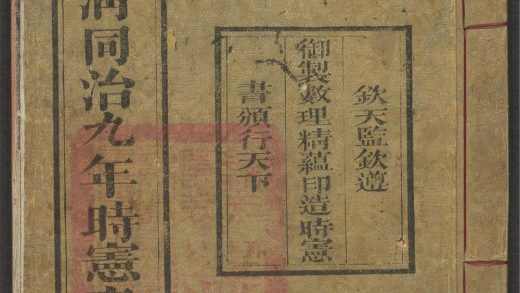 欽天監欽遵
御製數理精蘊印造時憲
書頒行天下
同治九年時憲